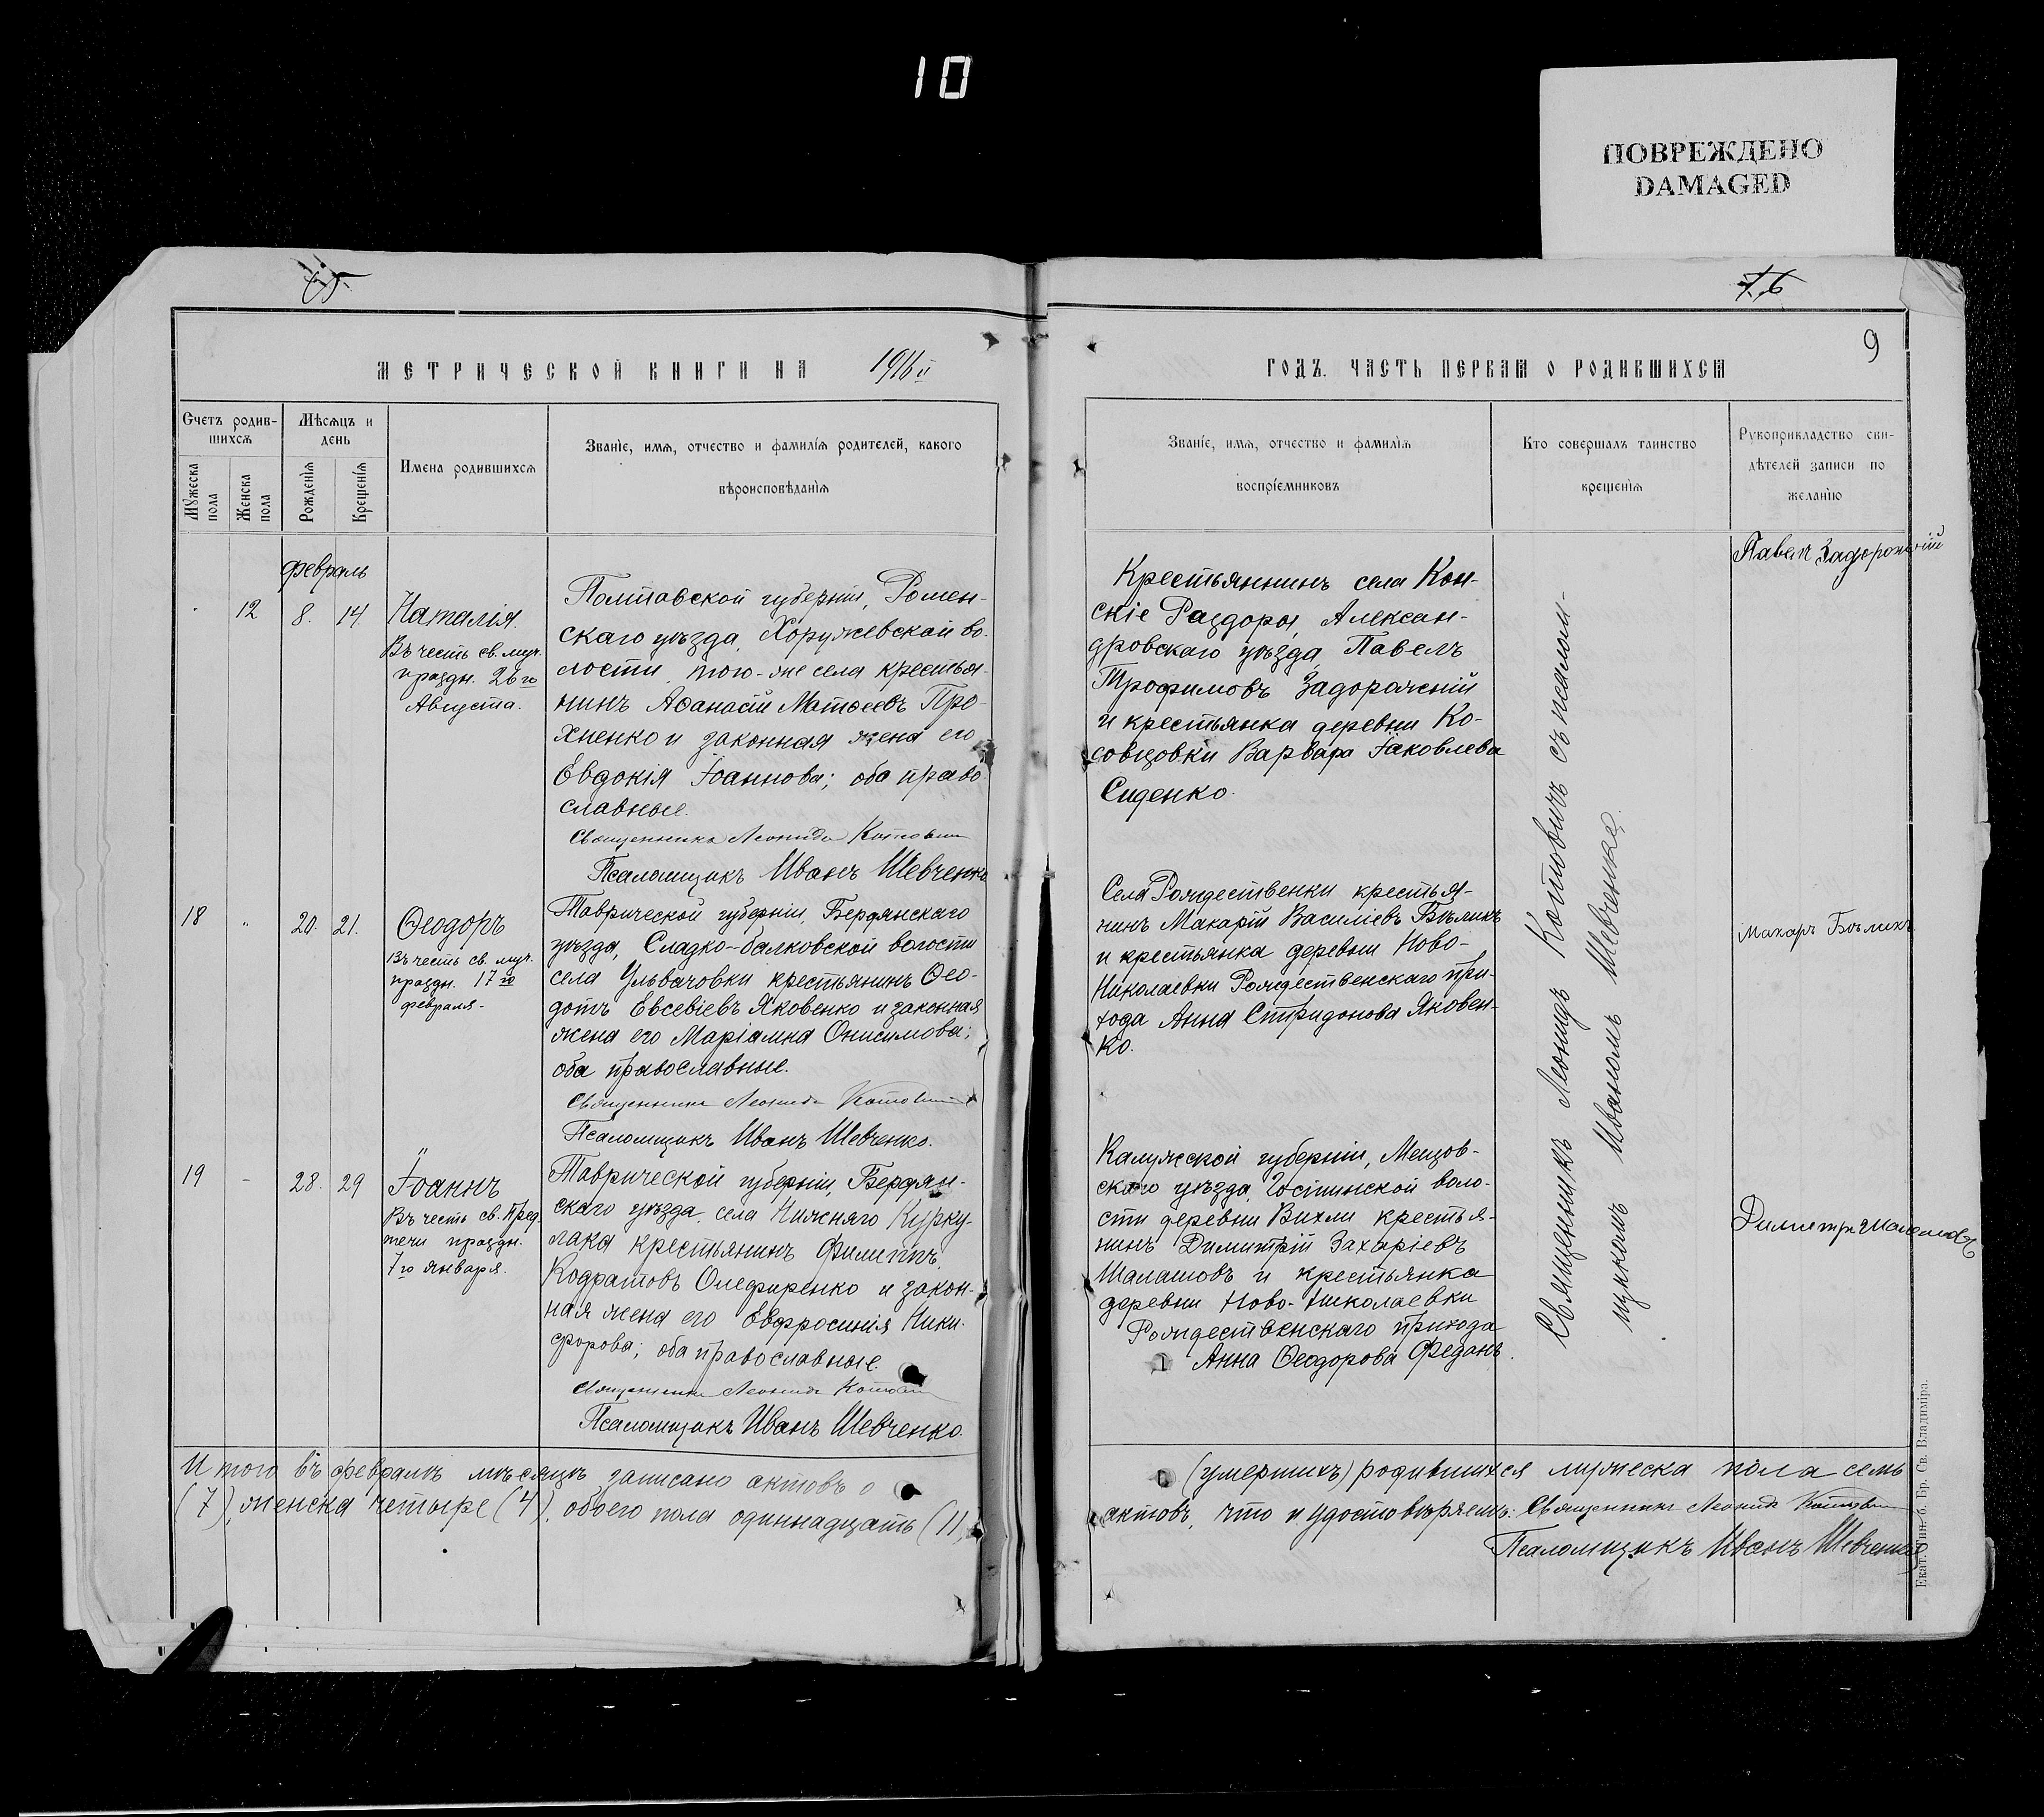 10
ПОВРЕЖДЕНО
DAMAGED
9
МЕТРИЧЕСКОЙ КНИГИ НА 1916й
ГОДЪ. ЧАСТЬ ПЕРВАЯ О РОДИВШИХСЯ
Счетъ родив-
шихся
Мужеска
пола
Женска
пола
Мѣсяцъ и
день
Рожденія
Крещенія
Имена родившихся
Званіе, имя, отчество и фамилія родителей, какого
вѣроисповѣданія
Званіе, имя, отчество и фамилія
воспріемниковъ
Кто совершалъ таинство
крещенія
Рукоприкладство сви-
дѣтелей записи по
желанію
февраль
12 8. 14.
Наталія.
Въ честь св. муч.
праздн. 26го
Августа.
Полтавской губерніи, Ромен-
скаго уѣзда, Хоружевской во-
лости, того-же села крестья-
нинъ Аѳанасій Матѳеевъ Про-
хненко и законная жена его
Евдокія Іоаннова; оба право-
славные.
Священникъ Леонидъ Котовичъ
Псаломщикъ Иванъ Шевченко
Крестьянинъ села Кон-
скіе Раздоры, Алексан-
дровскаго уѣзда, Павелъ
Трофимовъ Задорожній
и крестьянка деревни Ко-
совцовки Варвара Іаковлева
Сиденко.
Павел Задорожній
18 " 20. 21.
Ѳеодоръ
Въ честь св. муч.
праздн. 17го
февраля-
Таврической губерніи, Бердянскаго
уѣзда, Сладко-балковской волости
села Ульяновки крестьянинъ Ѳео-
дотъ Евсевіевъ Яковенко и законная
жена его Маріамна Онисимова;
оба православные.
Священникъ Леонидъ Котовичъ
Псаломщикъ Иванъ Шевченко.
Села Рождественки крестья-
нинъ Макарій Василіевъ Бѣликъ
и крестьянка деревни Ново-
Николаевки Рождественскаго при-
хода Анна Спиридонова Яковен-
ко.
Макаръ Бѣликъ
19 - 28. 29
Іоаннъ
Въ честь св. Пред-
течи праздн.
7го января.
Таврической губерніи, Бердян-
скаго уѣзда, села Нижняго Курку-
лака крестьянинъ Филиппъ
Кодратовъ Олефиренко и закон-
ная жена его Евфросинія Ники-
форова; оба православные.
Священникъ Леонидъ Котовичъ
Псаломщикъ Иванъ Шевченко.
Калужской губерніи, Мещов-
скаго уѣзда, Гостинской воло-
сти деревни Вихли крестья-
нинъ Димитрій Захаріевъ
Шалашовъ и крестьянка
деревни Ново-Николаевки
Рождественскаго прихода
Анна Ѳеодорова Федань.
Священникъ Леонидъ Котовичъ съ псалом-
щикомъ Иваномъ Шевченко.
Итого въ февралѣ мѣсяцѣ записано актовъ о
(умершихъ) родившихся мужеска пола семь
(7), женска четыре (4), обоего пола одиннадцать (11)
актовъ, что и удостовѣряемъ: Священникъ Леонидъ Котовичъ
Псаломщикъ Иванъ Шевченко
Екат. Тип. б. Бр. Св. Владиміра.